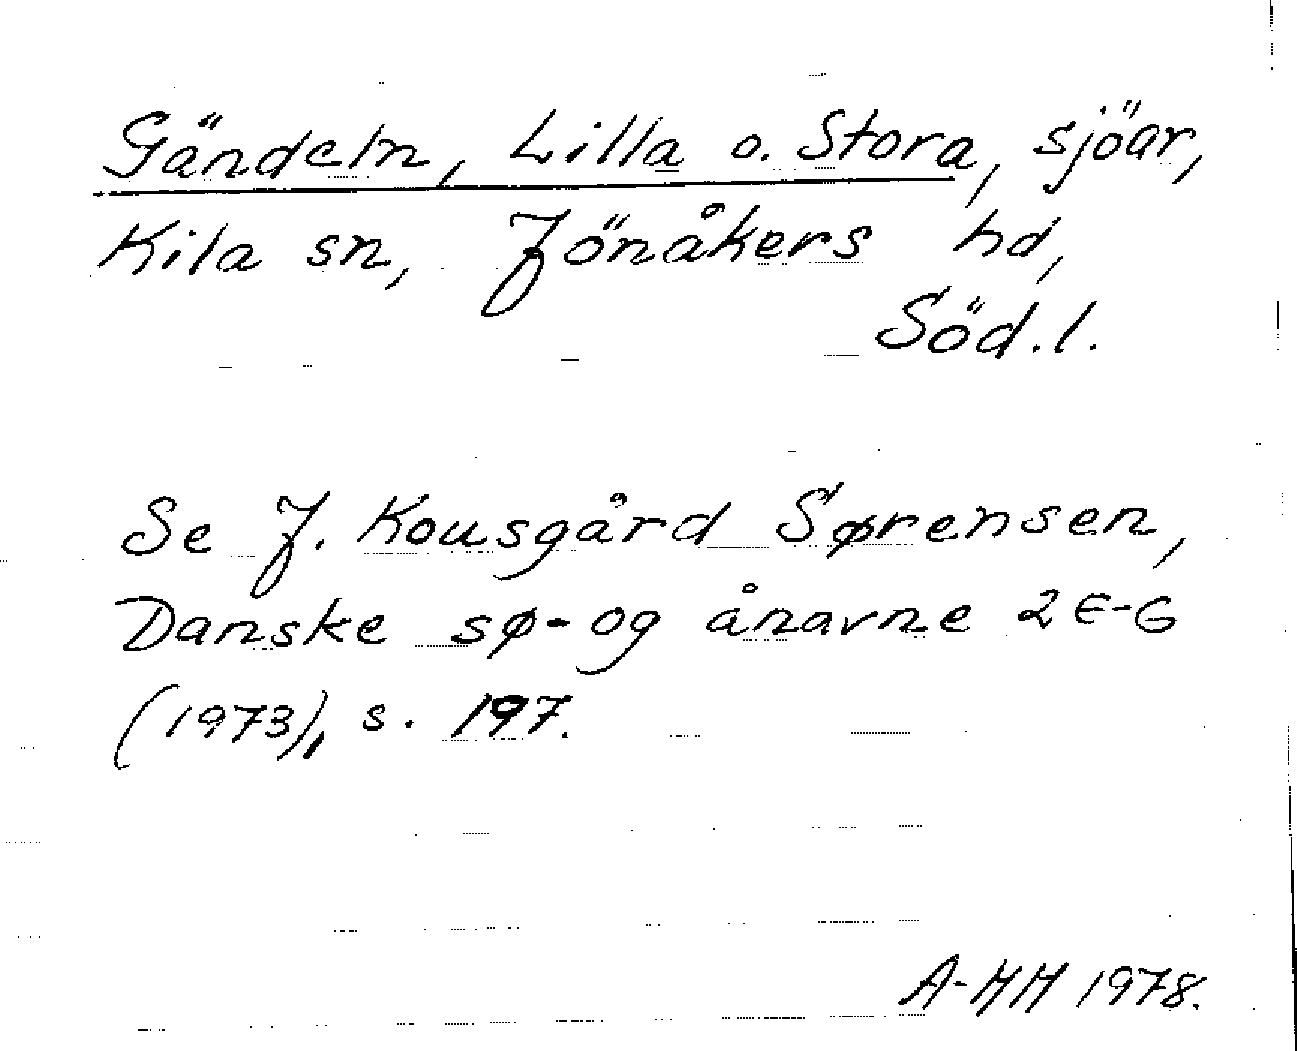 Gändeln, Lilla o. Stora, sjöar,
Kila sn, Jönåkers hd,
Söd.l.
Se J. Kousgård Sørensen,
Danske sø- og ånavne 2 E-G
(1973), s. 197.
A-HH 1978.